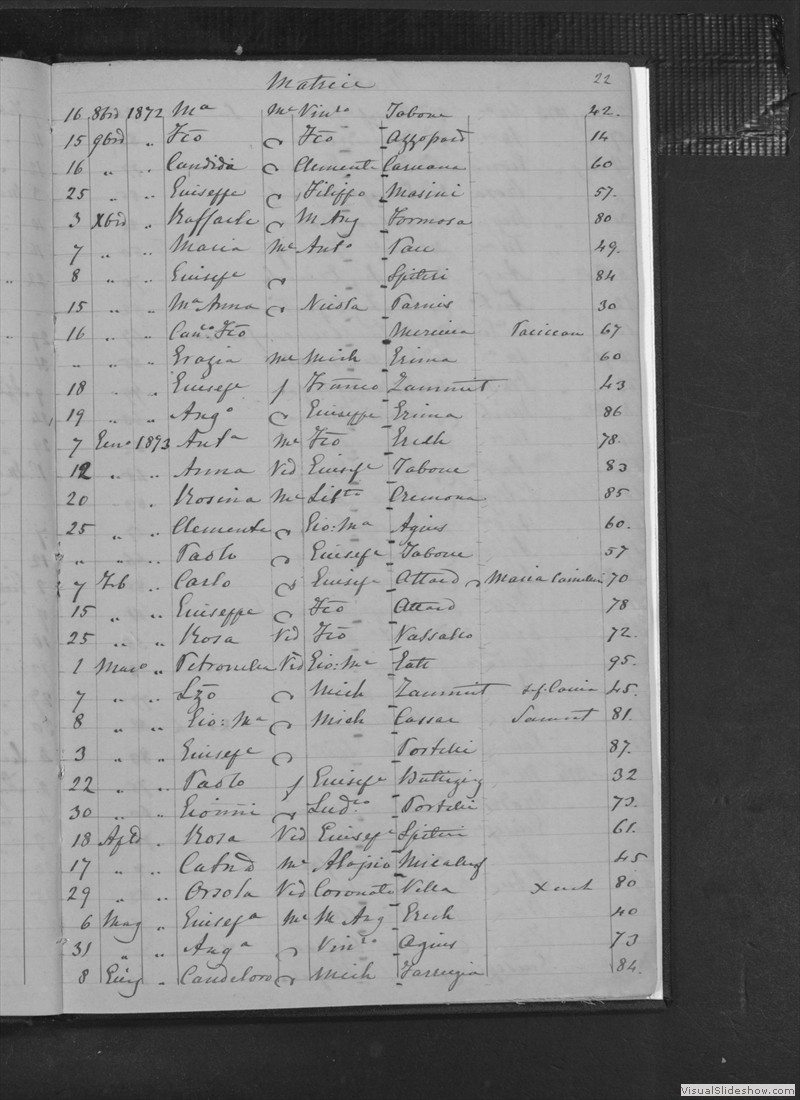 Matrice 22
16 8brè 1872 Ma Me Vinzo Tabone 42.
15 9brè " Fco Fco Azzopard 14
16 " " Candida Clemente Caruana 60
25 " " Giuseppe Filippo Masini 57.
3 Xbrè " Raffaele M Ang Formosa 80
7 " " Maria Me Anto Pace 49.
8 " " Giusepe Spiteri 84
15 " " Ma Anna Nicola Farnis 30
16 " " Cano. Fco 67
" " " Grazia Me Mich Grima 60
18 " Giusepe f Franco Zammit 43
19 " " Ango Giuseppe Grima 86
7 Geno 1873 Anta Me Fco Grech 78.
12 " " Anna Vid Giusepe Tabone 83
20 " Rosina Me Cremona 85
25 " " Clemente Gio: Ma Agius 60.
" " " Paolo Giusepe Tabone 57
7 Feb " Carlo Giusepe Attard Maria 70
15 " Giuseppe Fco Attard 78
25 " " Rosa Vid Fco Vassallo 72.
1 Marzo " Petronilla Vid Gio: Ma Gatt 95.
7 " " Lzo Mich Zammit 45.
8 " " Gio: Ma Mich Cassar 81.
3 " " Giusepe Portelli 87.
22 " " Paolo f Giusepe Buttigieg 32
30 " " Gionni Ludco Portelli 73.
18 Aple " Rosa Vid Giusepe Spiteri 61.
17 " " Me Aloysio Micallef 45
29 " " Orsola Vid Coronato Vella 80
6 Mag " Giusepa Me M Ang Grech 40
31 " " Anga Vinzo Agius 73
8 Giug " Candeloro Mich Farrugia 84.
VisualSlideshow.com